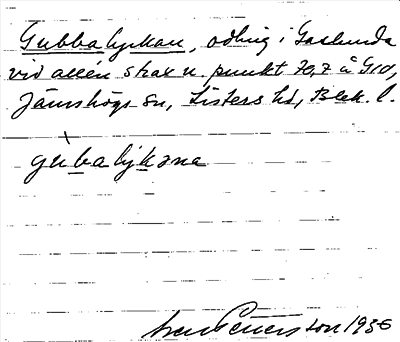 Gubbalyckan, odling i Gaslunda
vid allén strax n. punkt 70,7 å G10,
Jämshögs sn, Listers hd, Blek. l.
gùbalýkane
Pettersson 1936